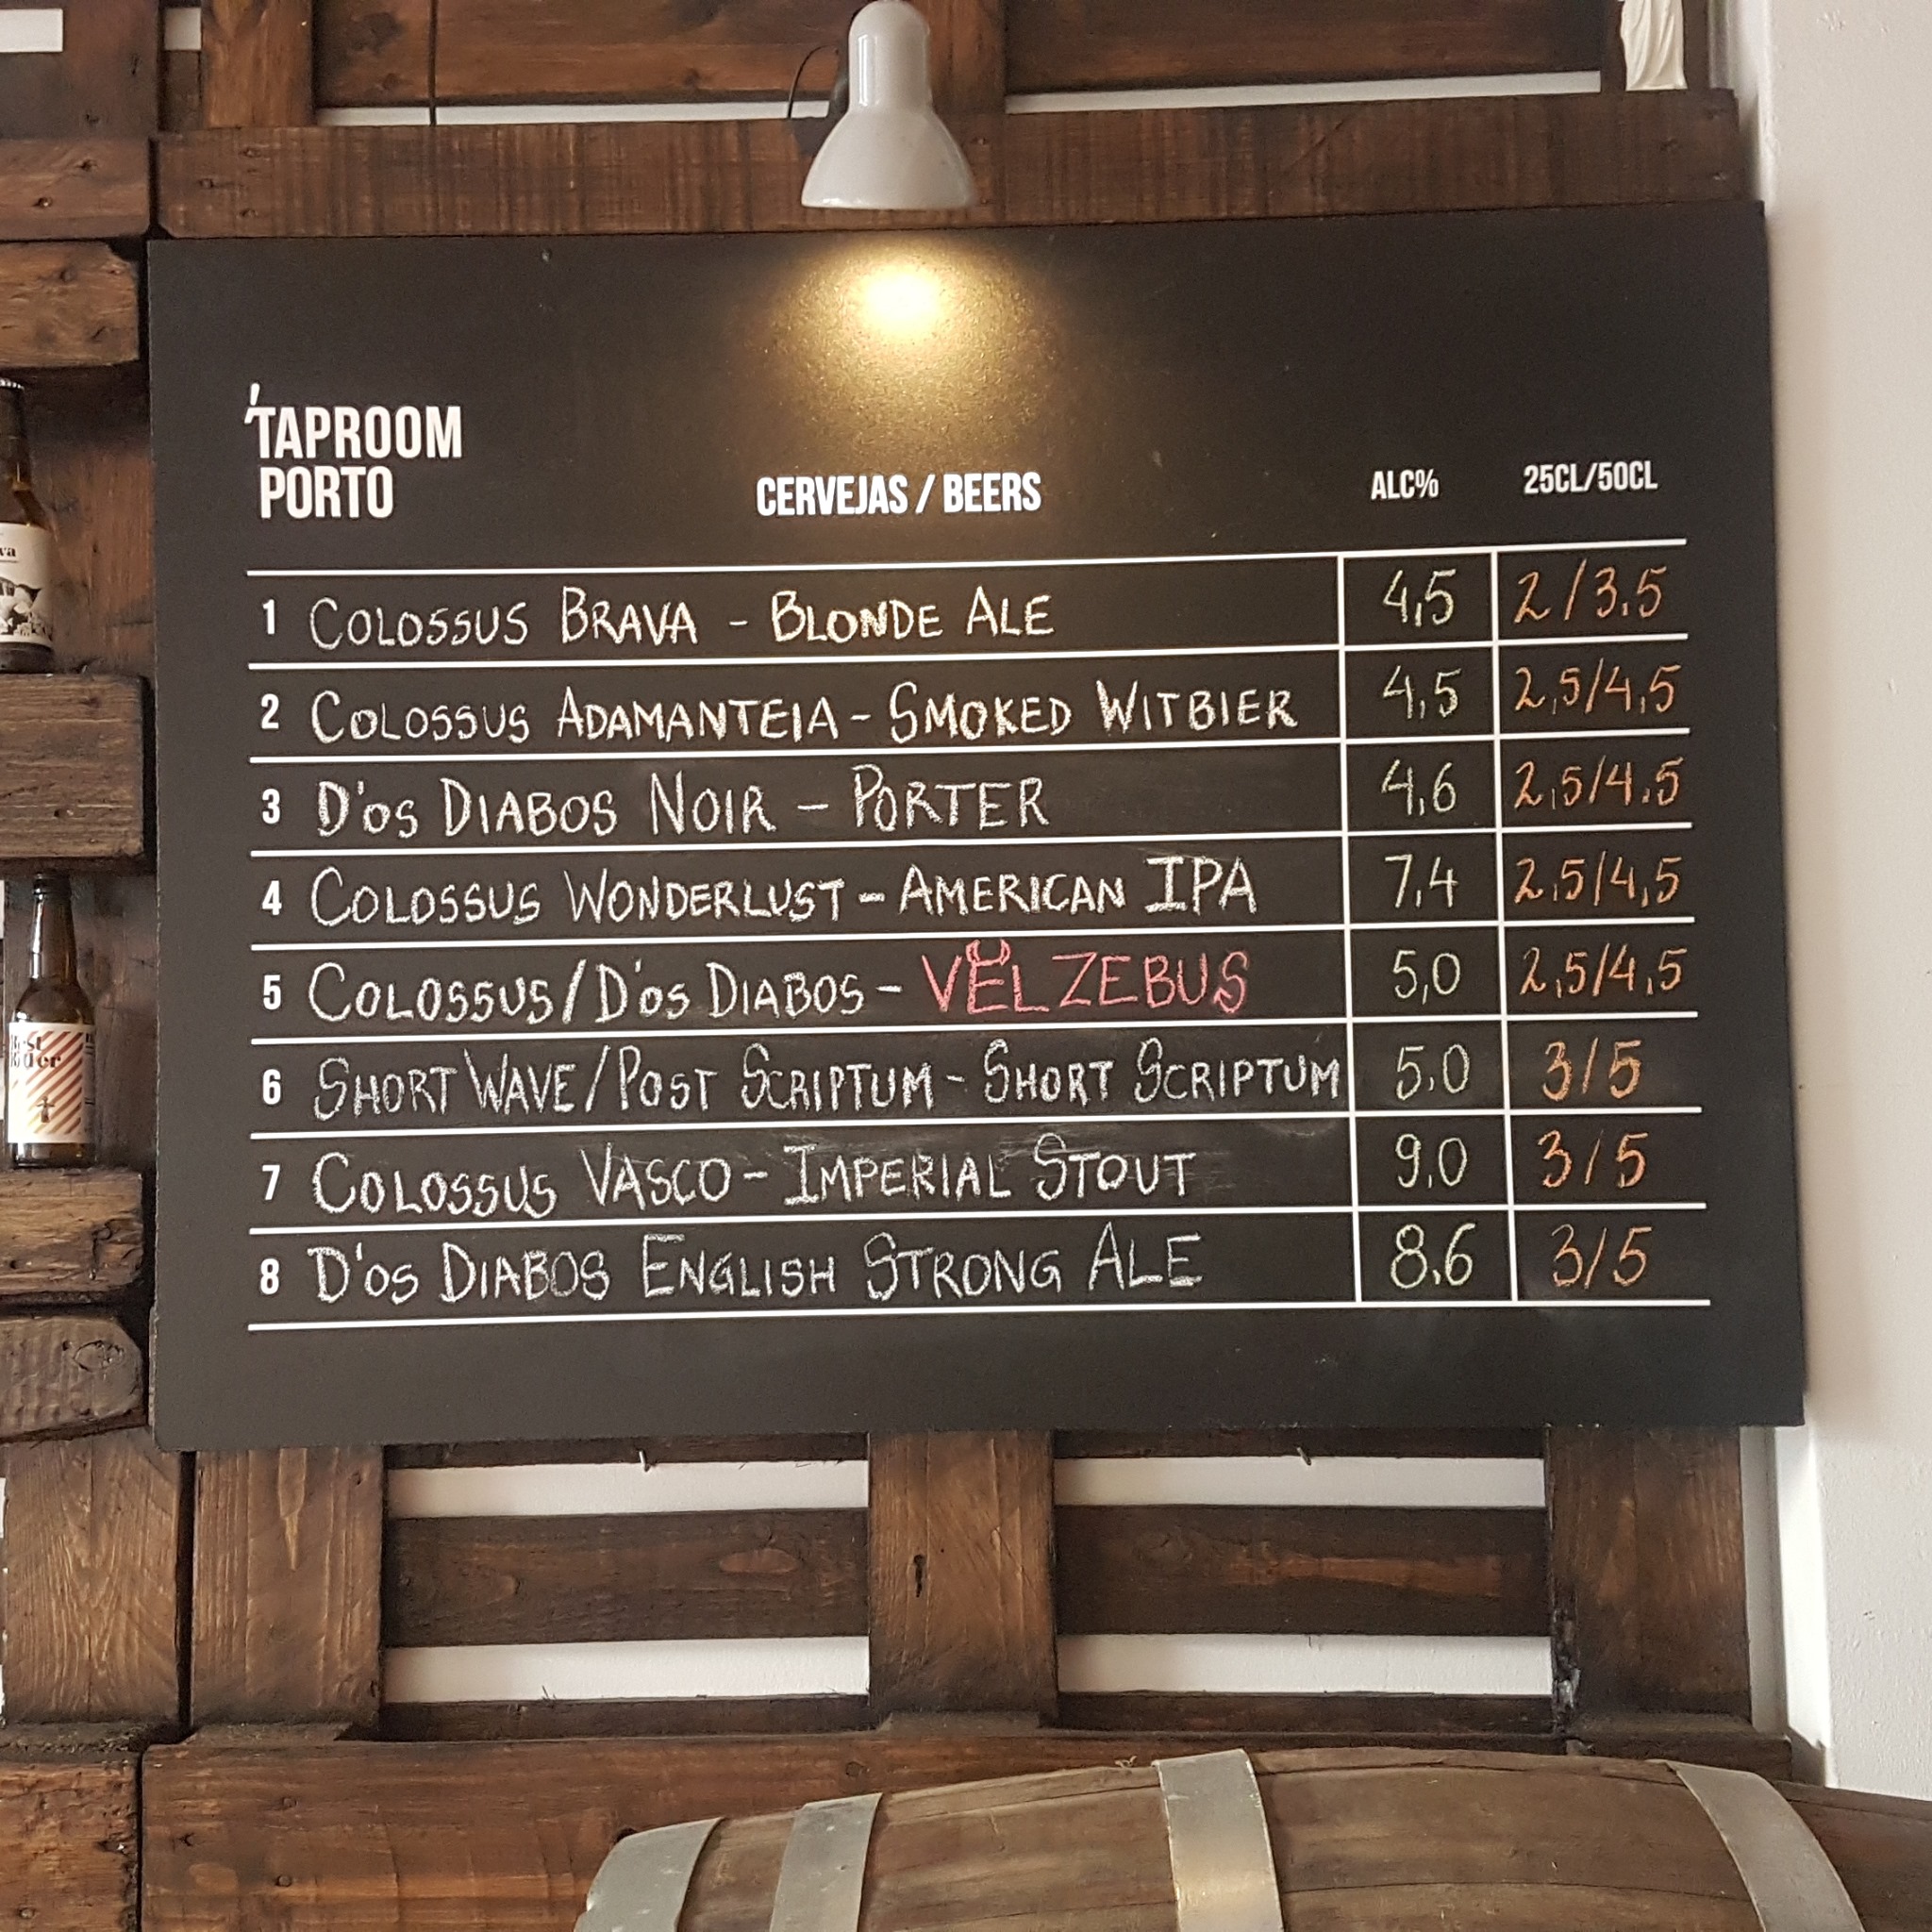 'TAPROOM
PORTO
CERVEJAS / BEERS ALC% 25CL/50CL
1 COLOSSUS BRAVA - BLONDE ALE 4,5 2/3.5
2 COLOSSUS ADAMANTEIA - SMOKED WITBIER 4,5 2,5/4,5
3 D'OS DIABOS NOIR - PORTER 4,6 2,5/4.5
4 COLOSSUS WONDERLUST - AMERICAN IPA 7,4 2,5/4,5
5 COLOSSUS/D'OS DIABOS - VELZEBUS 5,0 2,5/4,5
6 SHORT WAVE/POST SCRIPTUM - SHORT SCRIPTUM 5,0 3/5
7 COLOSSUS VASCO - IMPERIAL STOUT 9,0 3/5
8 D'OS DIABOS ENGLISH STRONG ALE 8.6 3/5